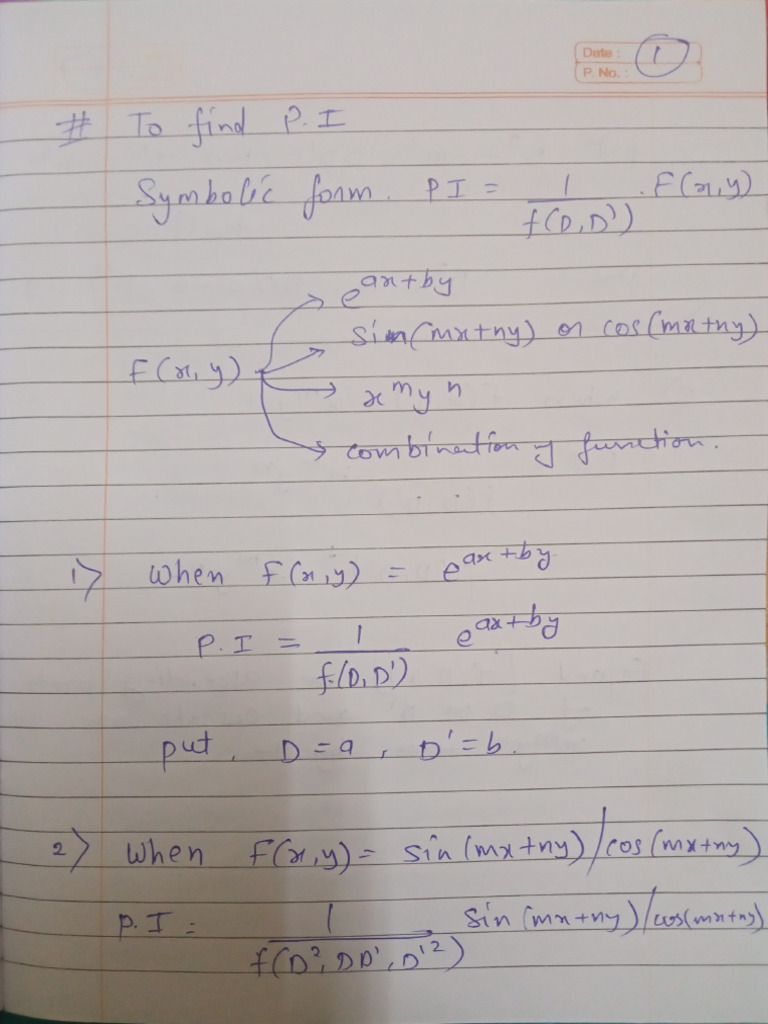 Date : 1
P. No. :
# To find P.I
Symbolic form. PI = 1/f(D,D') . F(x,y)
e^{ax+by}
sin(mx+ny) or cos(mx+ny)
F(x,y)
x^m y^n
combination of function.
1> When F(x,y) = e^{ax+by}
P.I = 1/f(D,D') e^{ax+by}
put, D = a , D' = b.
2> When F(x,y) = sin(mx+ny)/cos(mx+ny)
P.I = 1/f(D², DD', D'²) sin(mx+ny)/cos(mx+ny)